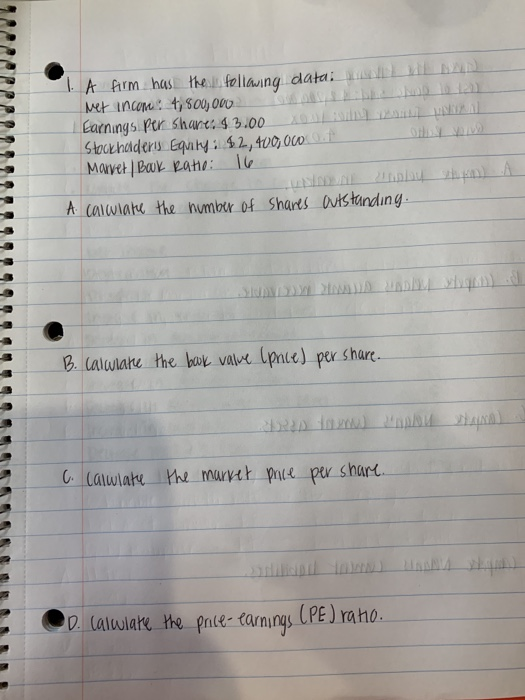 1. A firm has the following data:
Net income: 4,800,000
Earnings Per share: $3.00
Stockholders Equity: $2,400,000
Market/Book Ratio: 16
A calculate the number of shares outstanding.
B. Calculate the book value (price) per share.
C. Calculate the market price per share.
D. Calculate the price-earnings (PE) ratio.